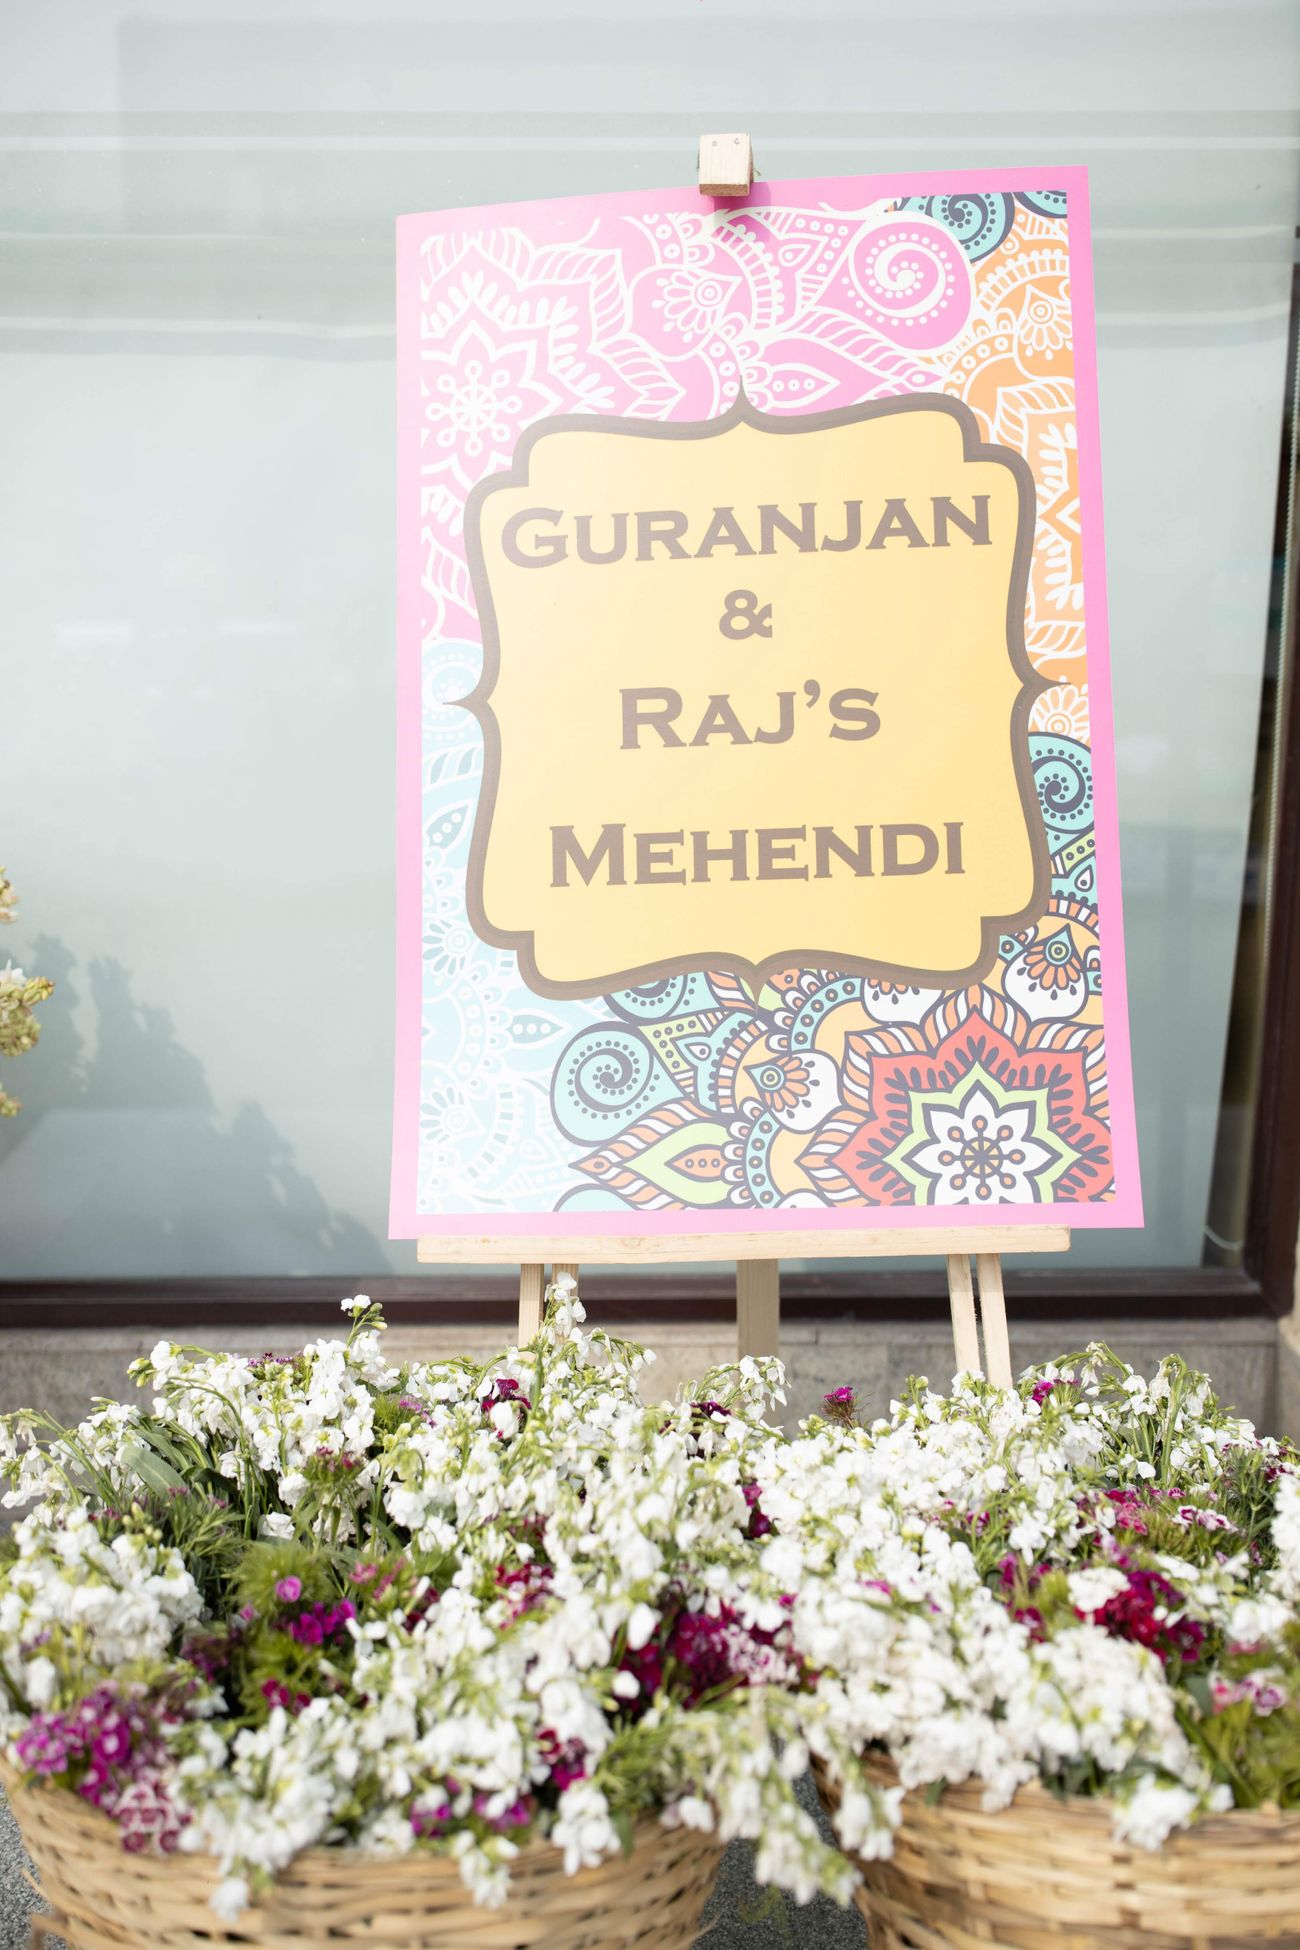 GURANJAN
&
RAJ'S
MEHENDI